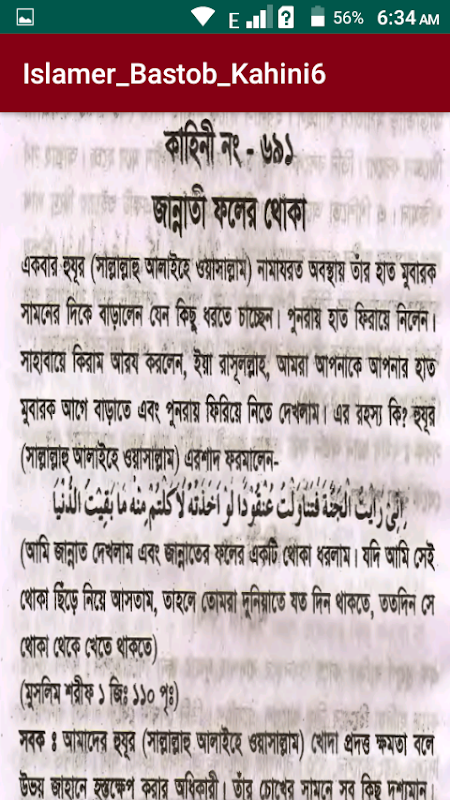 E 56% 6:34 AM
Islamer_Bastob_Kahini6
কাহিনী নং - ৬৯১
জান্নাতী ফলের থোকা
একবার হুযূর (সাল্লাল্লাহু আলাইহে ওয়াসাল্লাম) নামাযরত অবস্থায় তাঁর হাত মুবারক
সামনের দিকে বাড়ালেন যেন কিছু ধরতে চাচ্ছেন। পুনরায় হাত ফিরায়ে নিলেন।
সাহাবায়ে কিরাম আরয করলেন, ইয়া রাসূলল্লাহ, আমরা আপনাকে আপনার হাত
মুবারক আগে বাড়াতে এবং পুনরায় ফিরিয়ে নিতে দেখলাম। এর রহস্য কি? হুযূর
(সাল্লাল্লাহু আলাইহে ওয়াসাল্লাম) এরশাদ ফরমালেন-
اِنِّىْ رَاَيْتُ الْجَنَّةَ فَتَنَاوَلْتُ عُنْقُوْدًا لَوْ اَخَذْتُهٗ لَاَكَلْتُمْ مِنْهُ مَا بَقِيَتِ الدُّنْيَا
(আমি জান্নাত দেখলাম এবং জান্নাতের ফলের একটি থোকা ধরলাম। যদি আমি সেই
থোকা ছিঁড়ে নিয়ে আসতাম, তাহলে তোমরা দুনিয়াতে যত দিন থাকতে, ততদিন সে
থোকা থেকে খেতে থাকতে)
(মুসলিম শরীফ ১ জিঃ ১১০ পৃঃ)
সবক ঃ আমাদের হুযূর (সাল্লাল্লাহু আলাইহে ওয়াসাল্লাম) খোদা প্রদত্ত ক্ষমতা বলে
উভয় জাহানে হস্তক্ষেপ করার অধিকারী। তাঁর চোখের সামনে সব কিছু দৃশ্যমান।